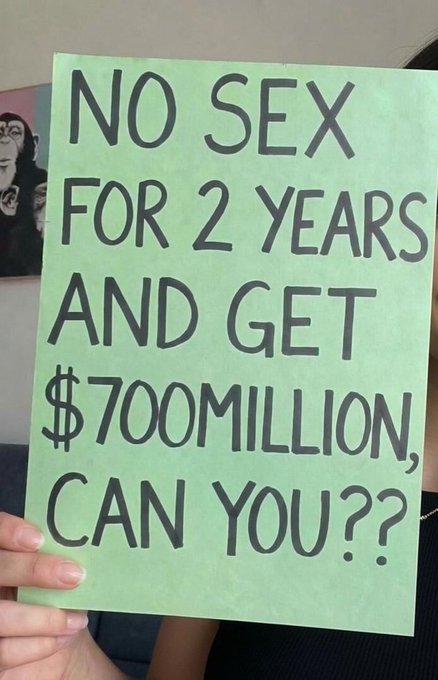 NO SEX
FOR 2 YEARS
AND GET
$700MILLION,
CAN YOU??